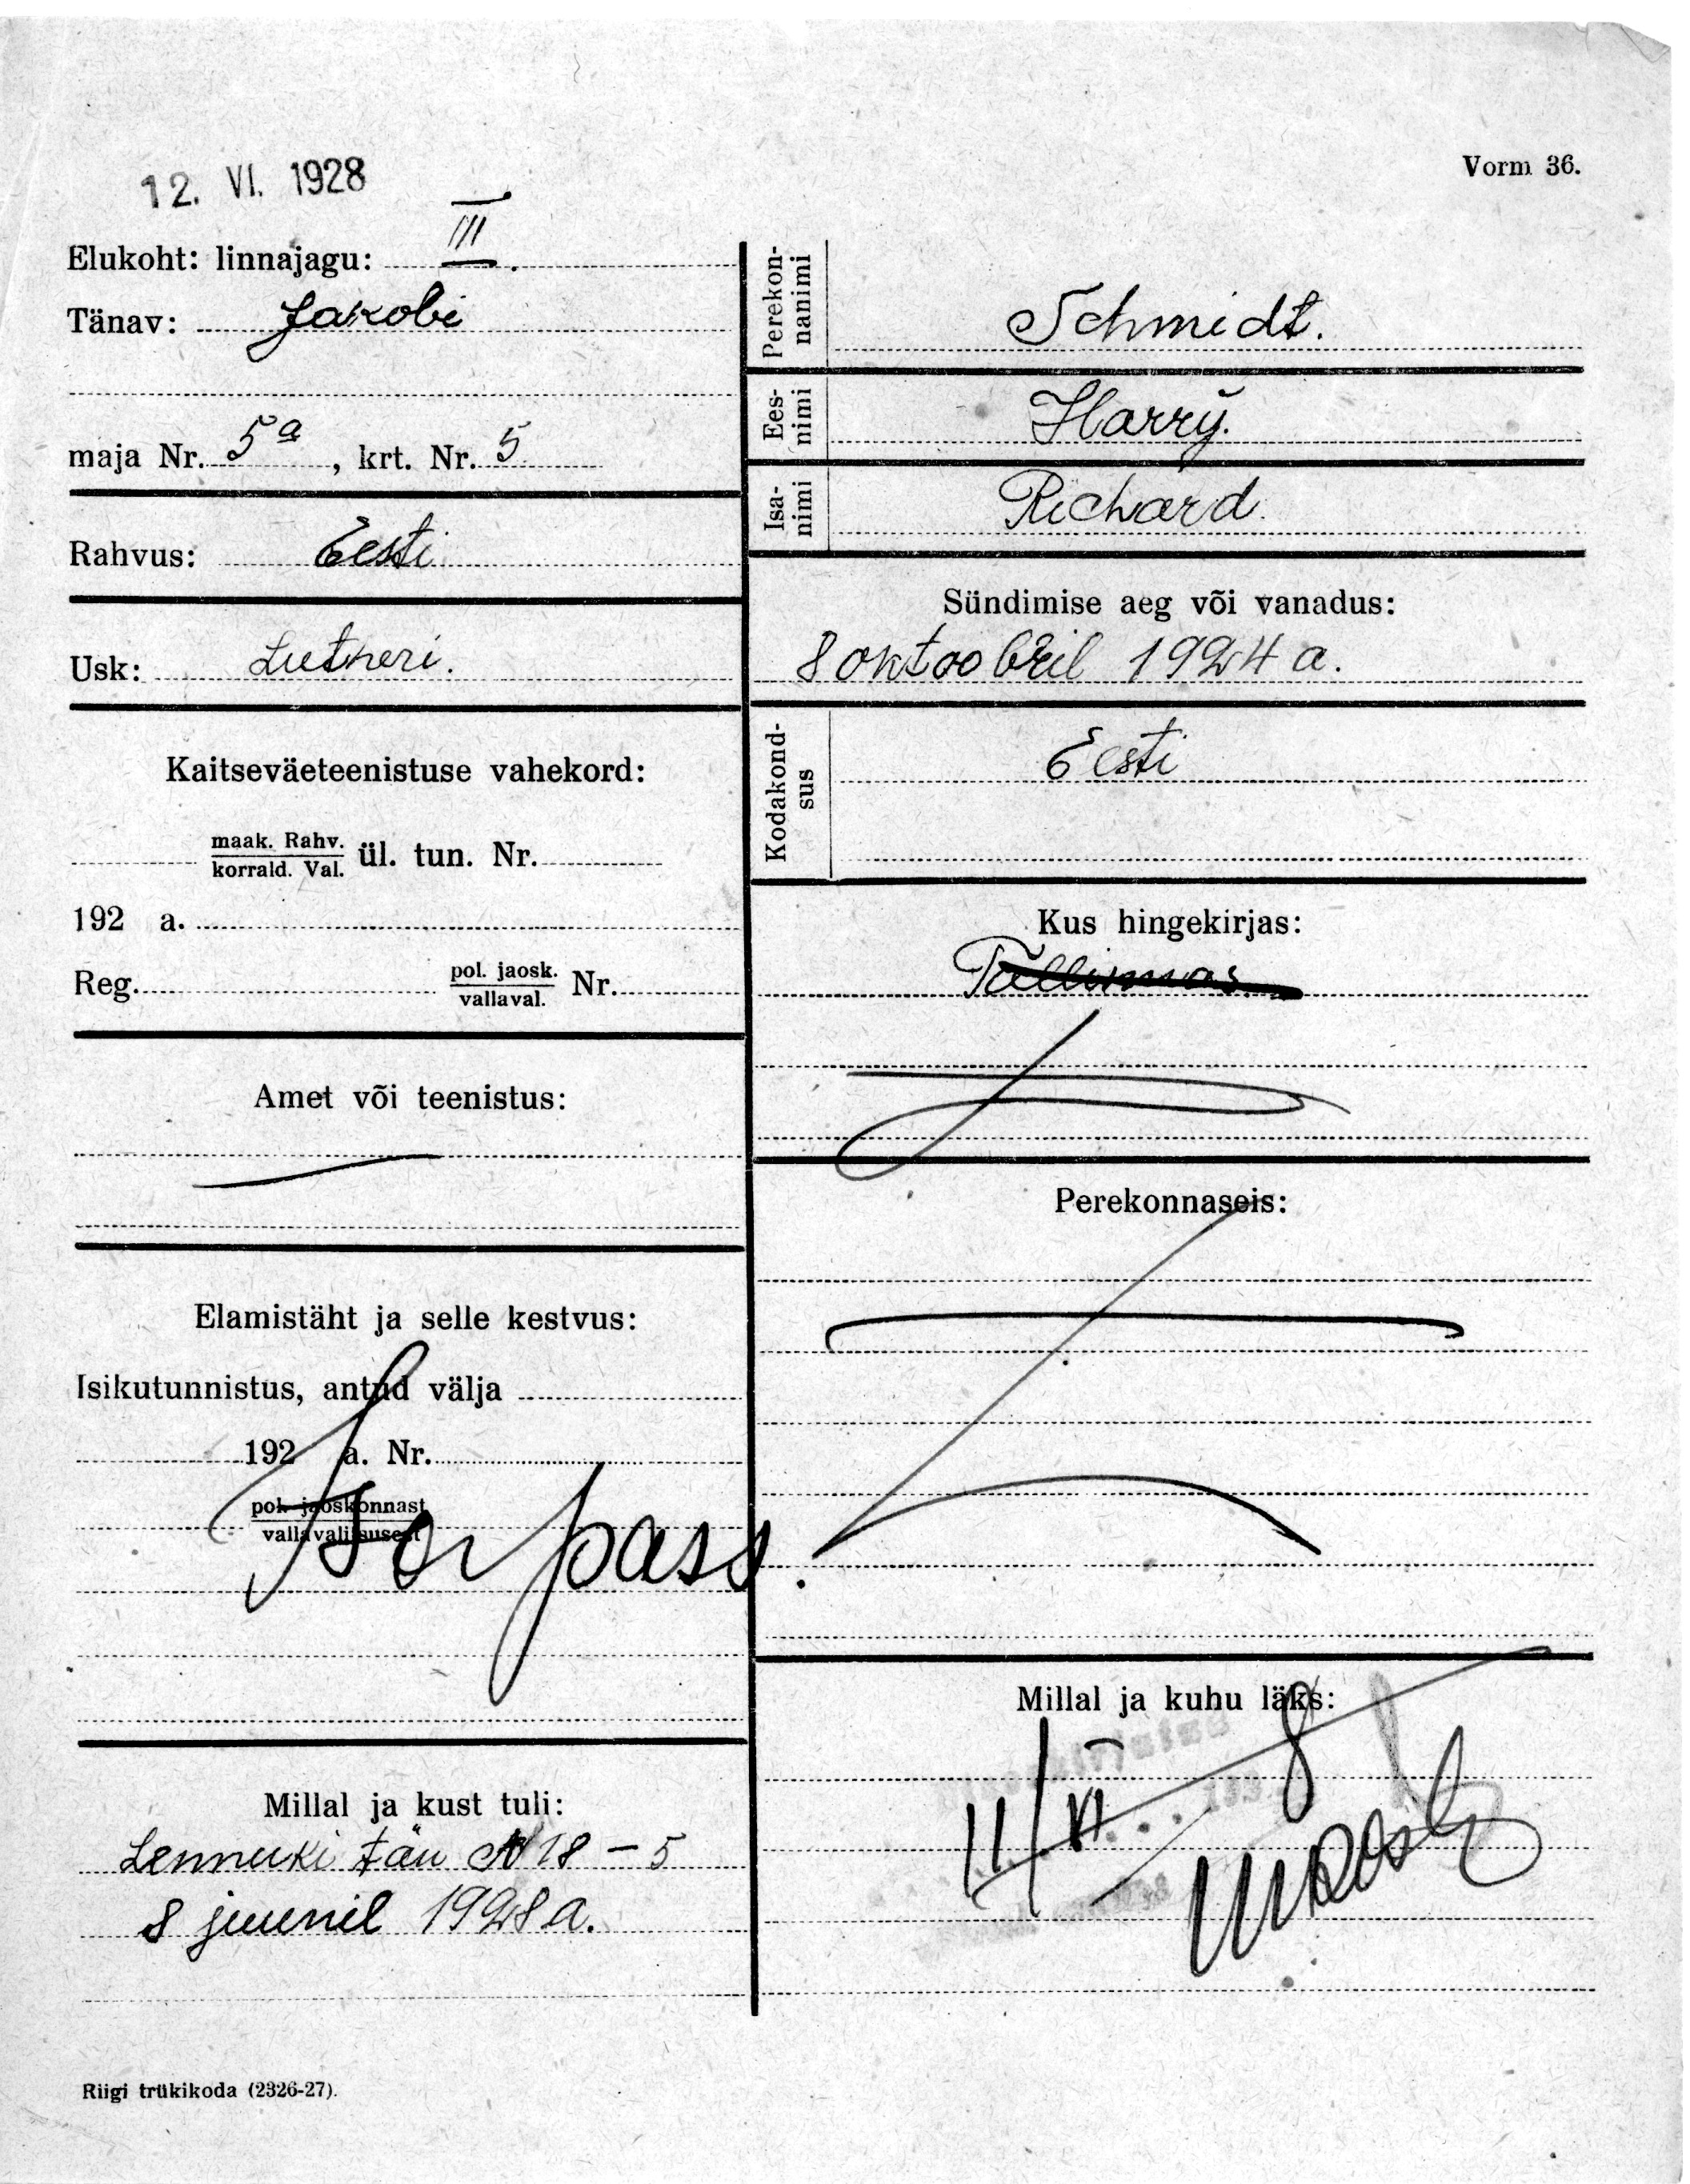 12. VI. 1928
Vorm 36.
Elukoht: linnajagu: III.
Tänav: Jakobi
maja Nr. 5a, krt. Nr. 5
Rahvus: Eesti
Usk: Lutheri.
Kaitseväeteenistuse vahekord:
maak. Rahv.
korrald. Val. ül. tun. Nr.
192 a.
Reg. pol. jaosk.
vallaval. Nr.
Amet või teenistus:
Elamistäht ja selle kestvus:
Isikutunnistus, antud välja
192 a. Nr.
pol. jaoskonnast
vallavalitsusest
pass.
Millal ja kust tuli:
Lennuki tän N 18 – 5
8 juunil 1928 a.
Perekon-
nanimi Schmidt.
Ees-
nimi Harry.
Isa-
nimi Richard.
Sündimise aeg või vanadus:
8 oktoobril 1924 a.
Kodakond-
sus Eesti
Kus hingekirjas:
Tallinnas
Perekonnaseis:
Millal ja kuhu läks:
11/VI
Riigi trükikoda (2326-27).